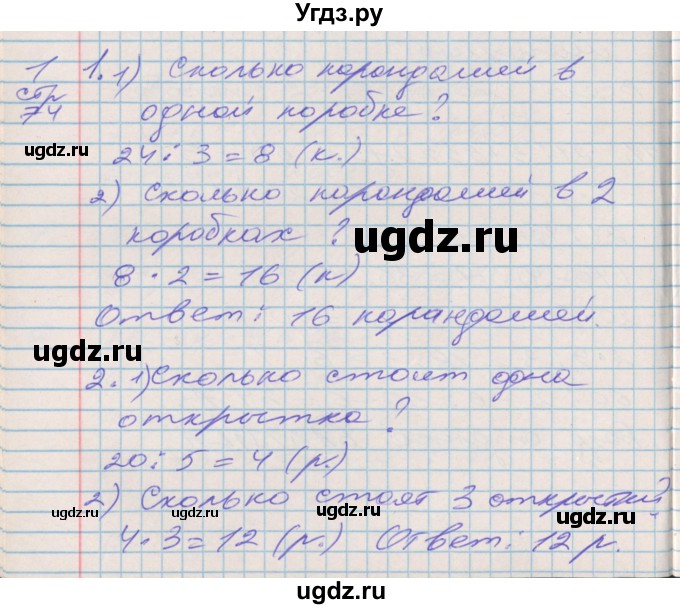 Угдз.ру
1 1. 1) Сколько карандашей в
стр 74 одной коробке?
ugdz.ru ugdz.ru
24 : 3 = 8 (к.)
2) Сколько карандашей в 2
коробках?
ugdz.ru
8 · 2 = 16 (к)
Ответ: 16 карандашей.
ugdz.ru
2. 1) Сколько стоит одна
открытка?
ugdz.ru
20 : 5 = 4 (р.)
2) Сколько стоят 3 открытки
ugdz.ru ugdz.ru ugdz.ru
4 · 3 = 12 (р.) Ответ: 12 р.
ugdz.ru